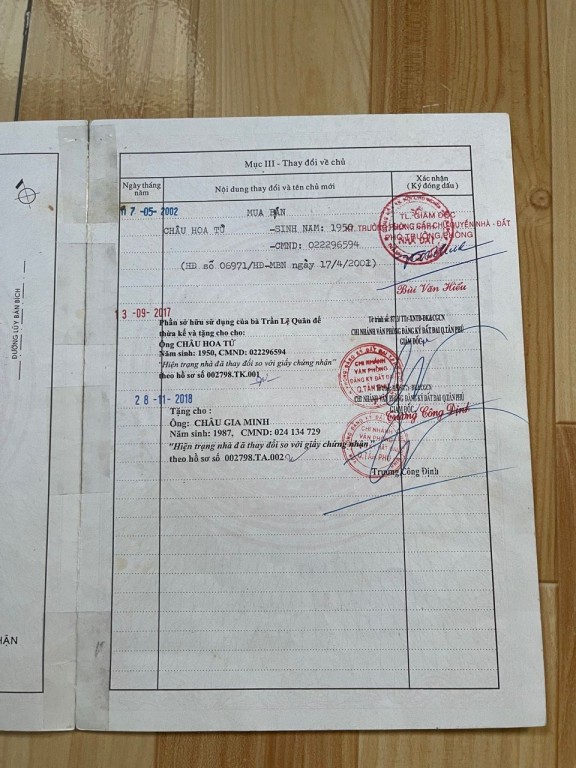 ĐƯỜNG LŨY BÁN BÍCH
HẬN
Mục III - Thay đổi về chủ
Ngày tháng năm
Nội dung thay đổi và tên chủ mới
Xác nhận
(Ký đóng dấu)
17-05-2002
MUA BÁN
CHÂU HOA TỬ -SINH NĂM: 1950
-CMND: 022296594
(HĐ số 06971/HĐ-MBN ngày 17/4/2002)
TL. GIÁM ĐỐC
TRƯỞNG PHÒNG CẤP CHỦ QUYỀN NHÀ - ĐẤT
PHÓ TRƯỞNG PHÒNG
NHÀ ĐẤT
Bùi Văn Hiếu
13-09-2017
Phần sở hữu sử dụng của bà Trần Lệ Quân để
thừa kế và tặng cho cho:
Ông CHÂU HOA TỬ
Năm sinh: 1950, CMND: 022296594
"Hiện trạng nhà đã thay đổi so với giấy chứng nhận"
theo hồ sơ số 002798.TA.001
CHI NHÁNH VĂN PHÒNG ĐĂNG KÝ ĐẤT ĐAI Q.TÂN PHÚ
GIÁM ĐỐC
CHI NHÁNH
VĂN PHÒNG
ĐĂNG KÝ ĐẤT ĐAI
Q.TÂN PHÚ
Trương Công Định
28-11-2018
Tặng cho :
Ông: CHÂU GIA MINH
Năm sinh: 1987, CMND: 024 134 729
"Hiện trạng nhà đã thay đổi so với giấy chứng nhận"
theo hồ sơ số 002798.TA.002
CHI NHÁNH VĂN PHÒNG ĐĂNG KÝ ĐẤT ĐAI Q.TÂN PHÚ
GIÁM ĐỐC
CHI NHÁNH
VĂN PHÒNG
Q.TÂN PHÚ
Trương Công Định